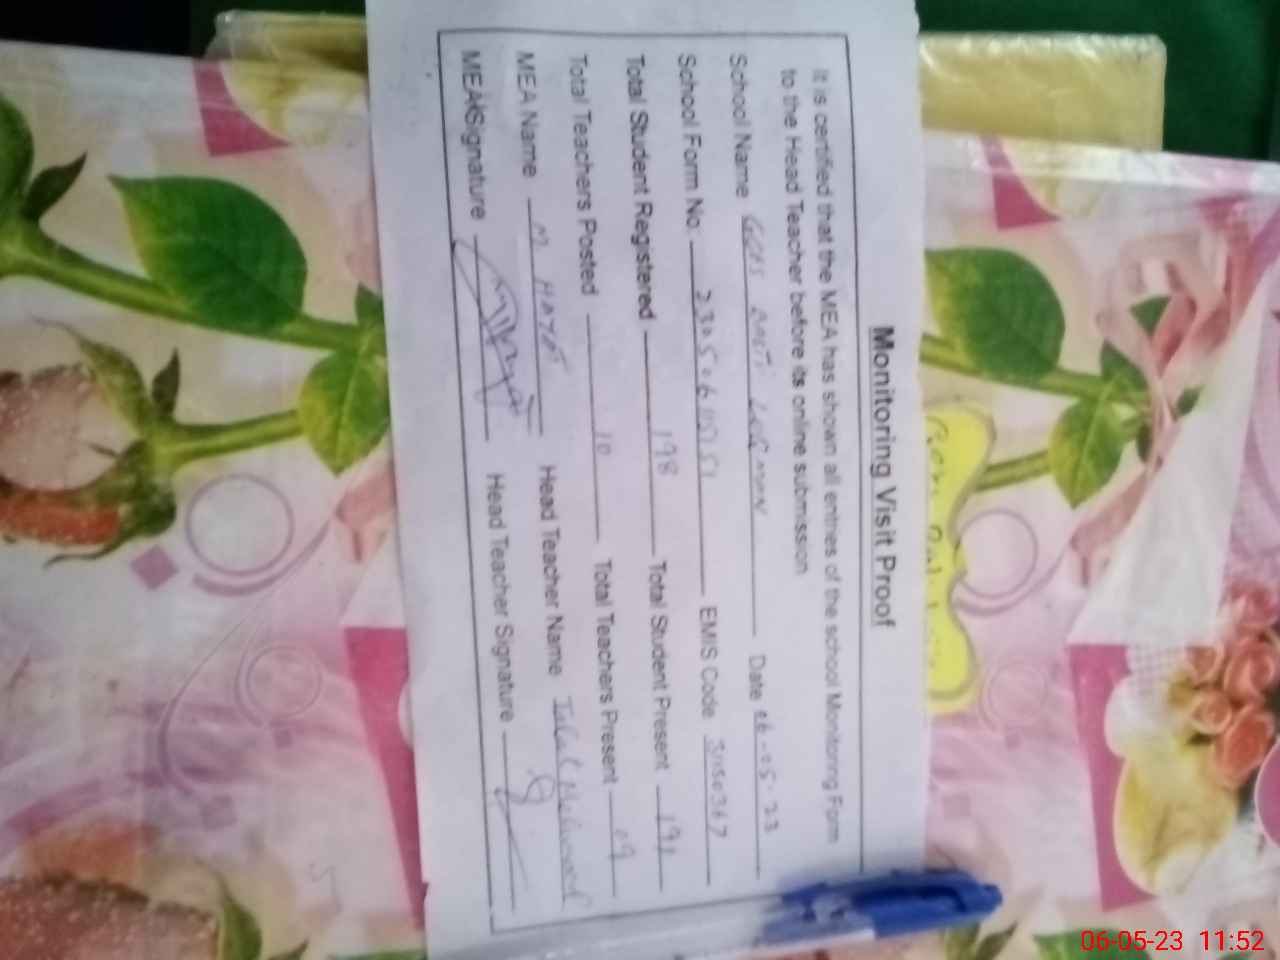 Monitoring Visit Proof
It is certified that the MEA has shown all entries of the school Monitoring Form
to the Head Teacher before its online submission
School Name Date 06-05-23
School Form No. EMIS Code
Total Student Registered 198 Total Student Present 191
Total Teachers Posted 10 Total Teachers Present 09
MEA Name Head Teacher Name
MEA Signature Head Teacher Signature
06-05-23 11:52